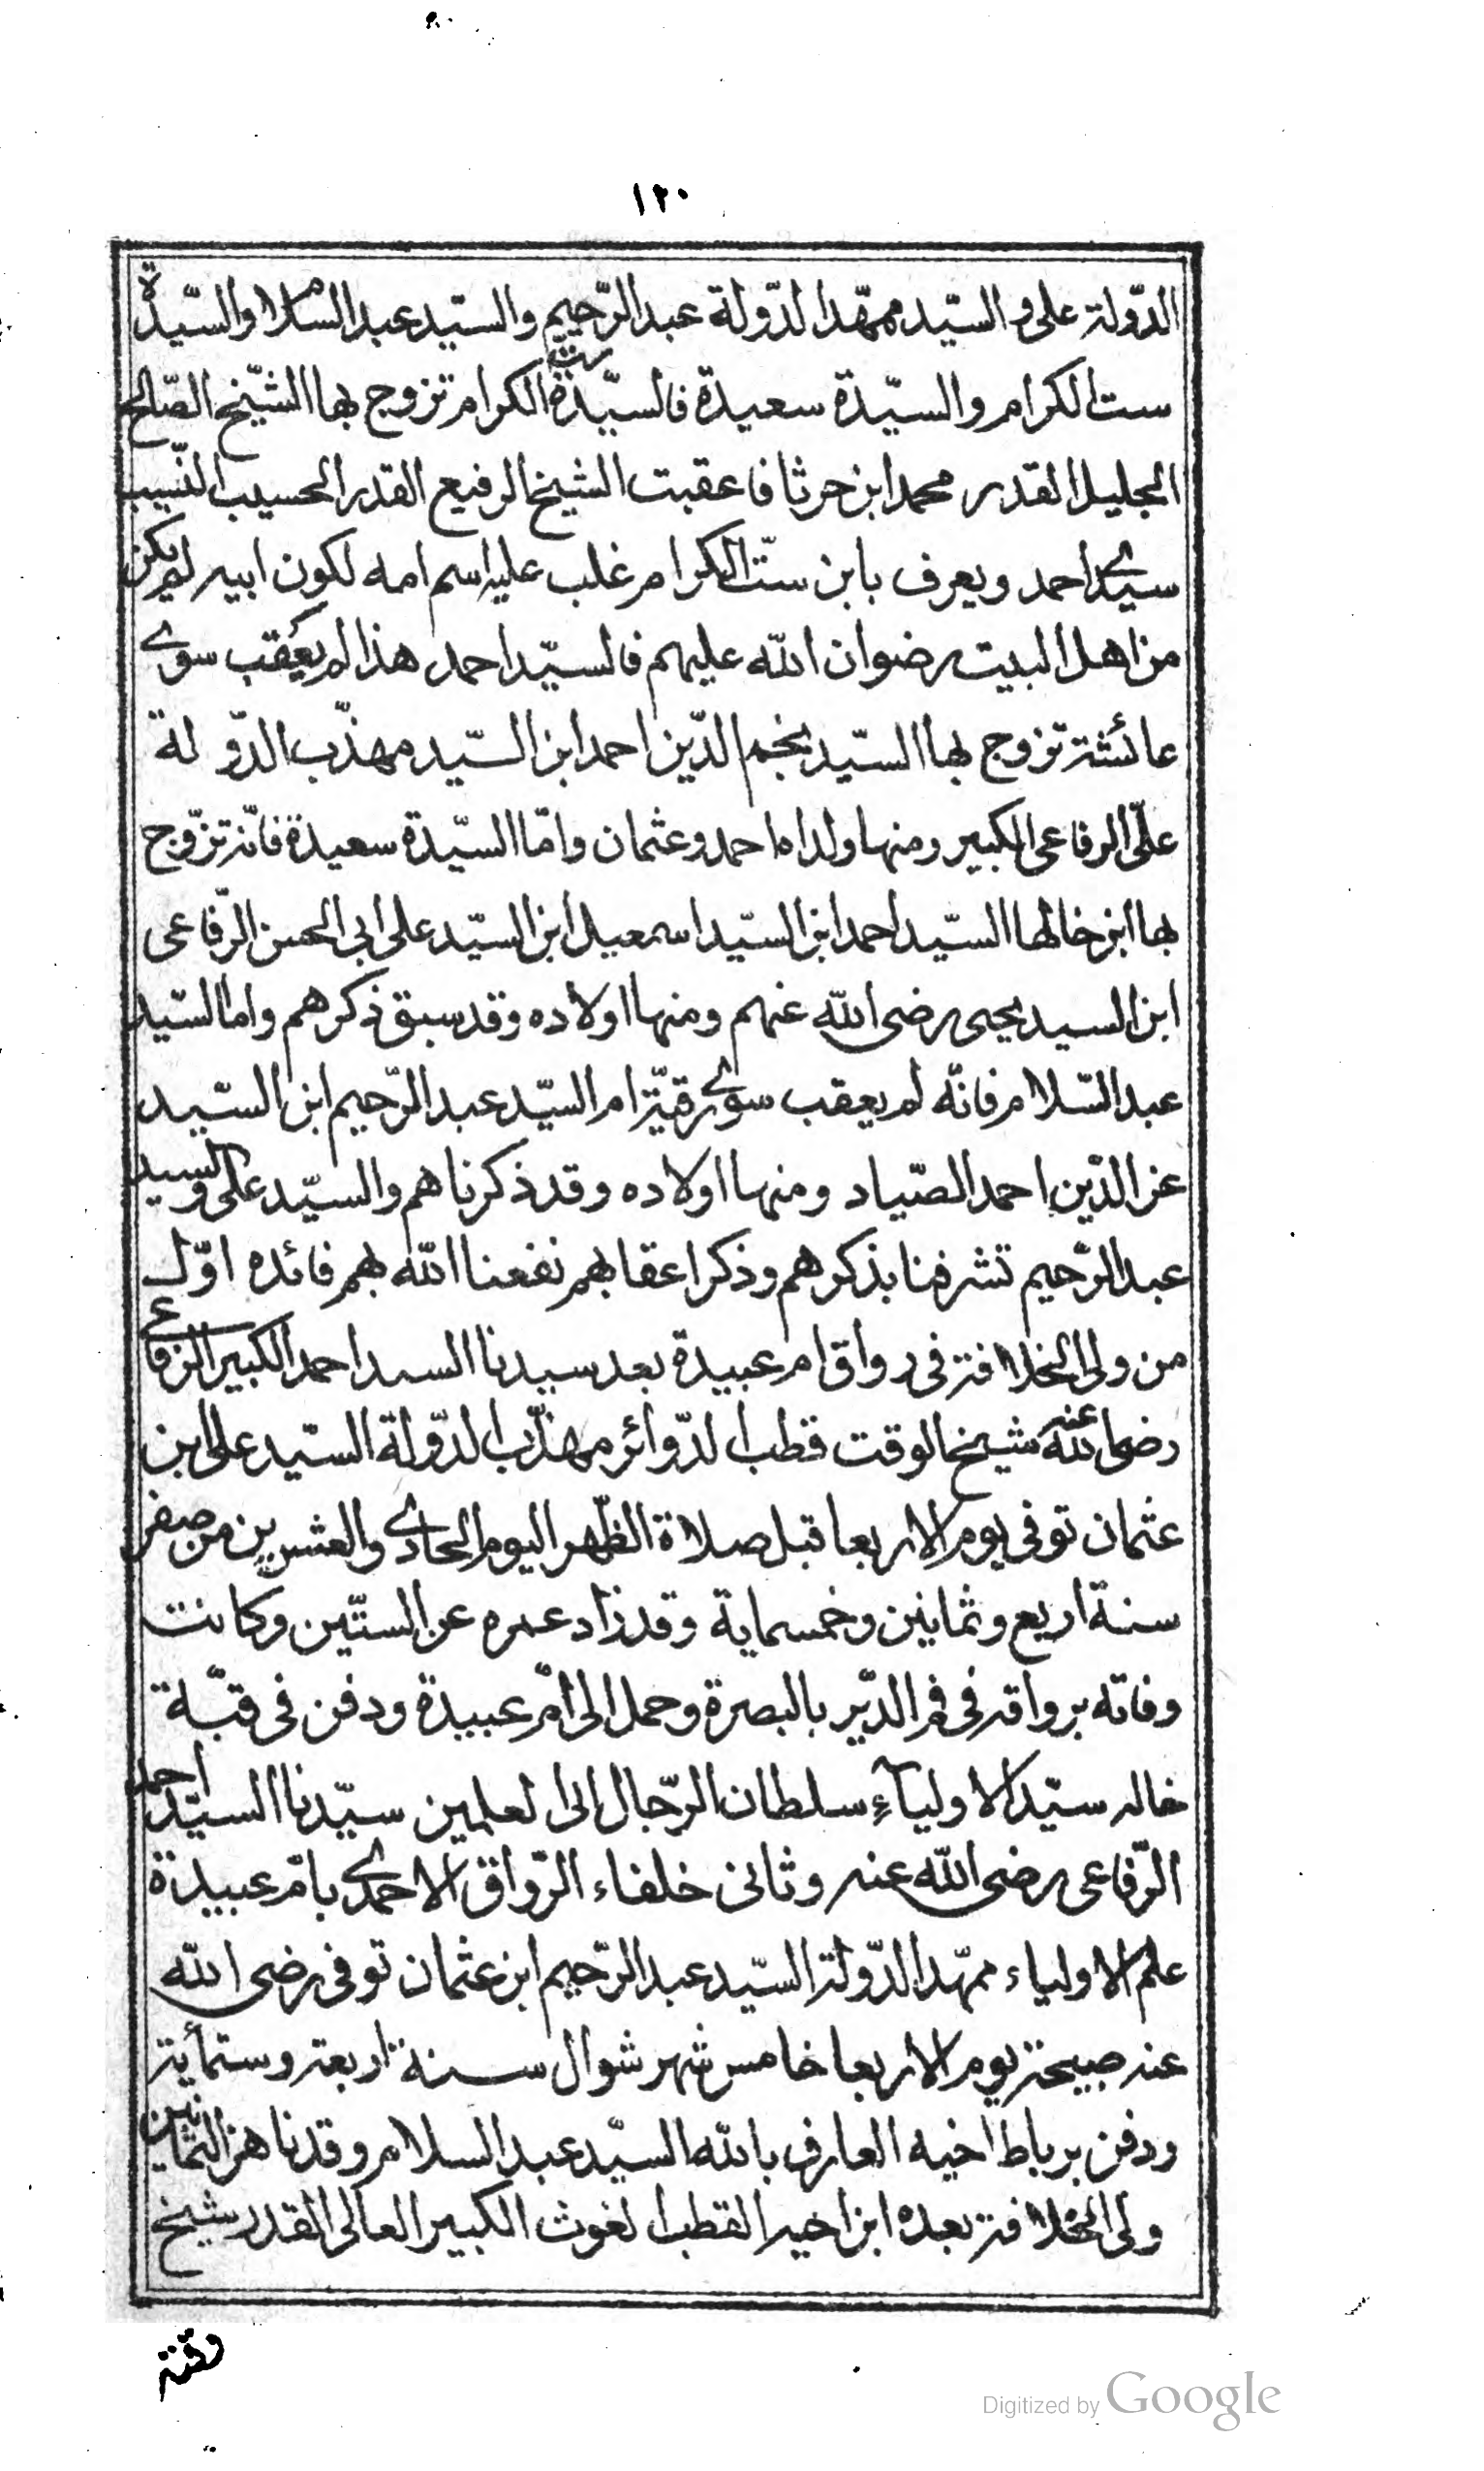 ١٢٠
الدّولة على و السّيد ممهّد الدّولة عبد الرّحيم والسّيد عبد السّلام والسّيّدة
ست الكرام والسيّدة سعيدة فالسيّدة ست الكرام تزوج بها الشّيخ الصّالح
الجليل القدر محمد ابن حرثا فاعقبت الشيخ الرفيع القدر الحسيب النّسيب
سيدى احمد ويعرف بابن ستّ الكرام غلب عليه اسم امه لكون ابيه لم يكن
من اهل البيت رضوان الله عليهم فالسيّد احمد هذا لم يعقب سوى
عائشة تزوج بها السيّد نجم الدّين احمد ابن السّيد مهذّب الدّولة
علىّ الرفاعى الكبير ومنها ولداه احمد وعثمان وامّا السيّدة سعيدة فانّه تزوّج
بها ابن خالها السيّد احمد ابن السيّد اسمعيل ابن السيّد على ابى الحسن الرّفاعى
ابن السيد يحيى رضى الله عنهم ومنها اولاده وقد سبق ذكرهم واما السّيد
عبد السّلام فانّه لم يعقب سوى رقيّة ام السيّد عبد الرّحيم ابن السيّد
عز الدّين احمد الصّياد ومنها اولاده وقد ذكرناهم والسيّد على والسيد
عبد الرّحيم تشرفنا بذكرهم وذكر اعقابهم نفعنا الله بهم فائده اوّل
من ولى الخلافة فى رواق ام عبيدة بعد سيدنا السيد احمد الكبير الرفاعى
رضى الله عنه شيخ الوقت قطب الدّوائر مهذّب الدّولة السيّد على ابن
عثمان توفى يوم الاربعا قبل صلاة الظّهر اليوم الحادى والعشرين من صفر
سنة اربع وثمانين وخمسماية وقد زاد عمره عن الستّين وكانت
وفاته برواقه فى فم الدّير بالبصرة وحمل الى امّ عبيدة ودفن فى قبّة
خاله سيّد الاوليآء سلطان الرّجال ابى العلمين سيّدنا السيّد احمد
الرّفاعى رضى الله عنه وثانى خلفاء الرّواق الاحمدى بامّ عبيدة
علم الاولياء ممهّد الدّولة السيّد عبد الرّحيم ابن عثمان توفى رضى الله
عنه صبيحة يوم الاربعا خامس شهر شوال سنة اربعة وستمأية
ودفن برباط اخيه العارف بالله السيّد عبد السلام وقد ناهز الثمانين
ولى الخلافة بعده ابن اخيه القطب الغوث الكبير العالى القدر شيخ
وقته
Digitized by Google